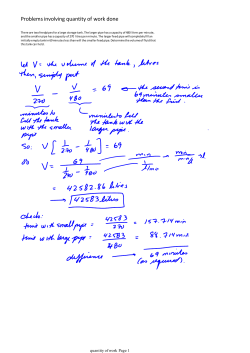 Problems involving quantity of work done
There are two feed pipes for a large storage tank. The larger pipe has a capacity of 480 litres per minute
and the smaller pipe has a capacity of 270 litres per minute. The larger feed pipe will completely fill an
initially empty tank in 69 minutes less than will the smaller feed pipe. Determine the volume of fluid that
the tank can hold.
let V = the volume of the tank, litres
then, simply put
V/270 - V/480 = 69 ← the second term is
69 minutes smaller
than the first
minutes to
fill the tank
with the smaller
pipe
minutes to fill
the tank with the
larger pipe
So: V [ 1/270 - 1/480 ] = 69
V = 69 / (1/270 - 1/480)
= 42582.86 litres
→ 42583 litres
check:
time with small pipe = 42583/270 = 157.714 min
time with large pipe = 42583/480 = 88.714 min
difference → 69 minutes
(as required).
quantity of work Page 1